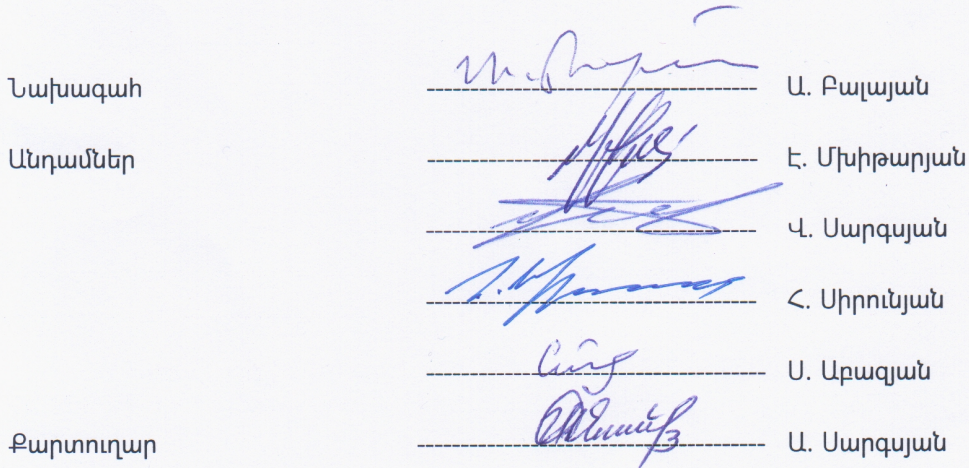 Նախագահ Ա. Բալայան
Անդամներ Է. Մխիթարյան
Վ. Սարգսյան
Հ. Սիրունյան
Ս. Աբազյան
Քարտուղար Ա. Սարգսյան